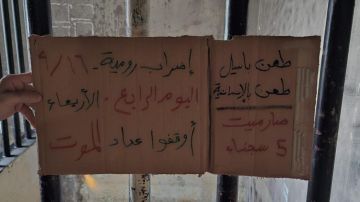 طعن باسيل
طعن بالإنسانية
صار ميت
5 سجناء
إضراب رومية. ٩/١٦
اليوم الرابع. الأربعاء
أوقفوا عداد الموت